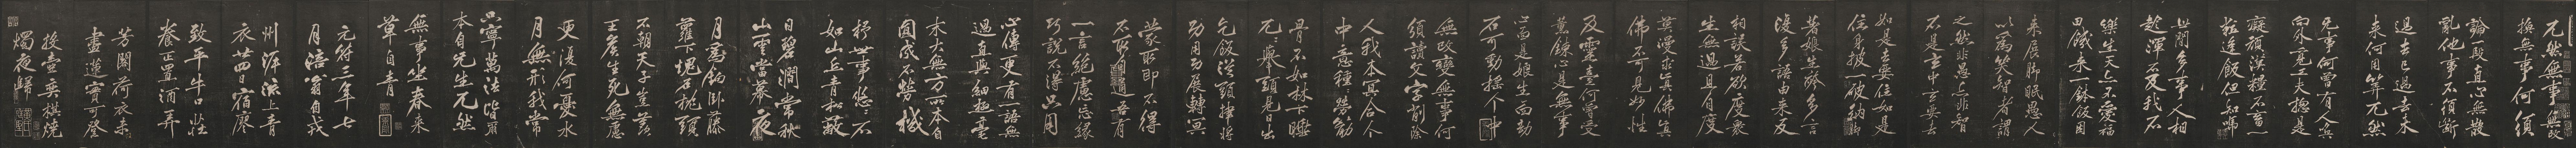 兀然無事無改
換無事何須
論一段真心無散
亂他事不須斷
過去已過去未
來何用算兀然
無事何曾有人喚
向外覓工夫總是
癡頑漢糧不畜一
粒逢飯但知嗎
世間多事人相
趁渾不及我不
樂生天亦不愛福
田饑來一鉢飯困
來展腳眠愚人
以為笑智者謂
之然非愚亦非智
不是玄中玄要去
如是去要住如是
住身披一破衲腳
著娘生袴多言
復多語由來反
相誤若欲度衆
生無過且自度
莫漫求真佛真
佛不可見妙性
及靈臺何曾受
薰鍊心是無事
心面是娘生面劫
石可動搖个中
無改變無事何
須讀文字削除
人我本冥合个
中意種種勞筋
骨不如林下睡
兀兀舉頭見日出
乞飯從頭捧將
功用功展轉冥
蒙取即不得
不取吾有
一言絕慮忘緣
巧說不得只用
心傳更有一語無
過直與細極毫
末大無方所本自
圓成不勞機
杼世事悠悠不
如山丘青松蔽
日碧澗常秋
山雲當幕夜
月爲鉤臥藤
蘿下塊石枕頭
不朝天子豈羨
王侯生死無慮
更復何憂水
月無形我常
只寧萬法皆爾
本自無生兀然
無事坐春來
草自青
元符三年七
月涪翁自戎
州泝流上青
衣廿四日宿廖
致平牛口莊
養正置酒弄
芳閣荷衣未
盡蓮實可登
投壺弈棋燒
燭夜歸